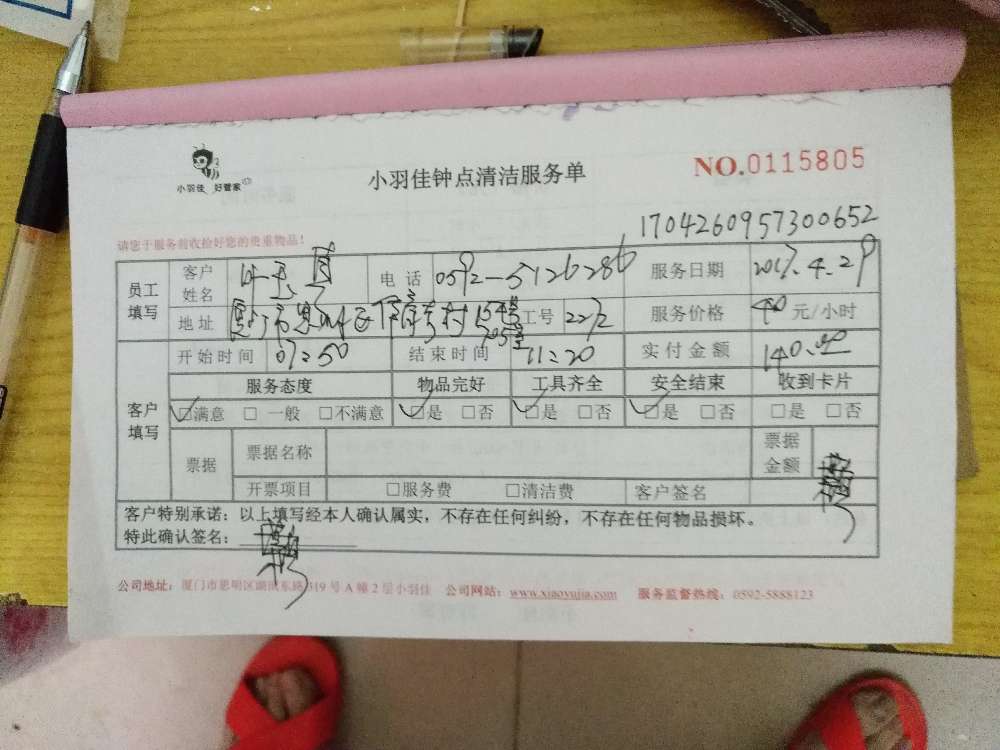 小羽佳 好管家
小羽佳钟点清洁服务单
NO.0115805
1704260957300652
请您于服务前收捡好您的贵重物品!
员工填写 客户姓名 叶 电话 0592-5126286 服务日期 2017.4.29
地址 厦门市思明区 村154号 705室 工号 2212 服务价格 40 元/小时
客户填写 开始时间 07:50 结束时间 11:20 实付金额 140.00
服务态度 物品完好 工具齐全 安全结束 收到卡片
☑满意 □一般 □不满意 ☑是 □否 ☑是 □否 ☑是 □否 □是 □否
票据 票据名称 票据金额
开票项目 □服务费 □清洁费 客户签名
客户特别承诺:以上填写经本人确认属实,不存在任何纠纷,不存在任何物品损坏。
特此确认签名:
公司地址:厦门市思明区湖滨东路319号A幢2层小羽佳 公司网站:www.xiaoyujia.com 服务监督热线:0592-5888123